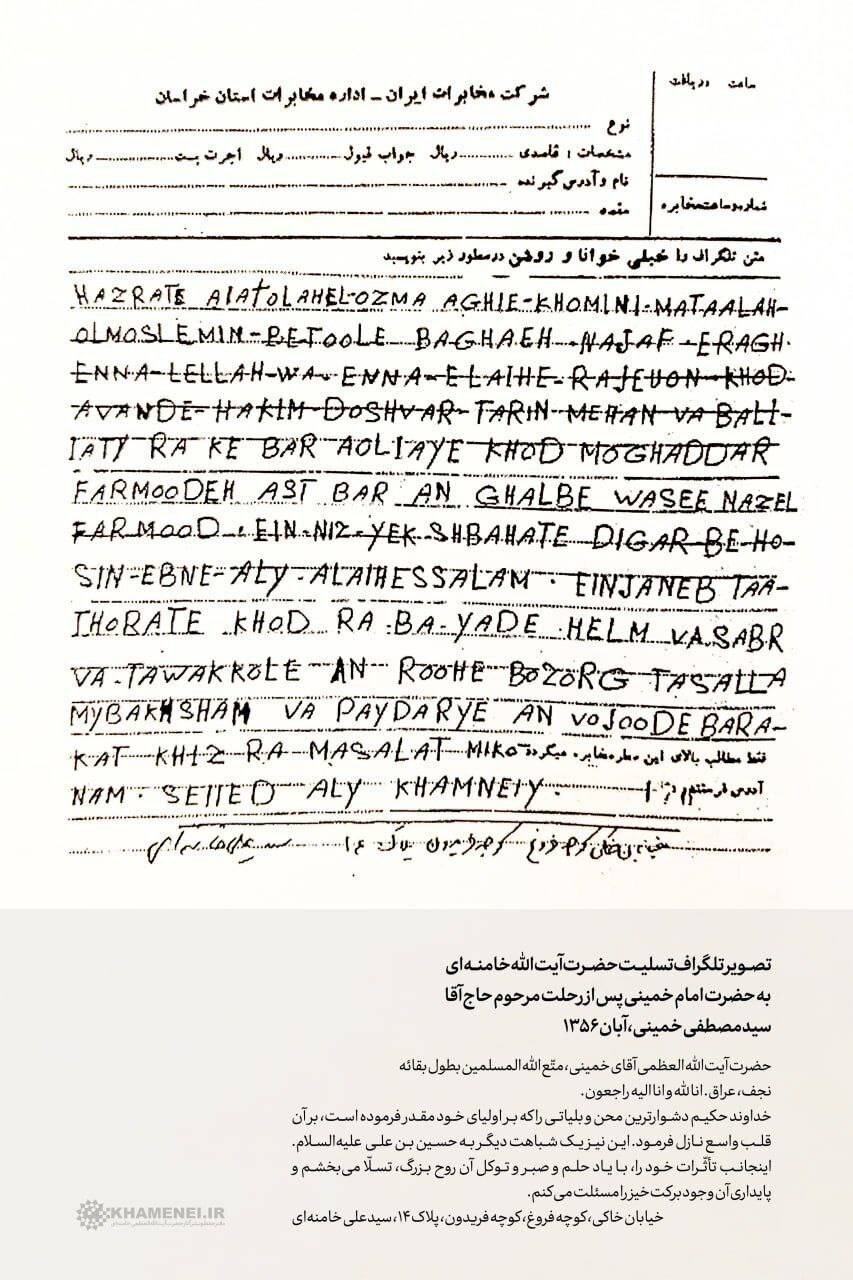 شرکت مخابرات ایران - اداره مخابرات استان خراسان
ساعت دریافت
نوع
مشخصات : قاصدی ریال جواب قبول ریال اجرت پست ریال
نام و آدرس گیرنده
مقصد
شماره و ساعت مخابره
متن تلگراف را خیلی خوانا و روشن در سطور زیر بنویسید
HAZRATE AIATOLAHEL-OZMA AGHIE-KHOMINI-MATAALAH-
OLMOSLEMIN-BETOOLE BAGHAEH-NAJAF-ERAGH.
ENNA-LELLAH-WA-ENNA-ELAIHE-RAJEUON-KHOD-
AVANDE-HAKIM-DOSHVAR-TARIN-MEHAN VA BALI-
IATY RA KE BAR AOLIAYE KHOD MOGHADDAR
FARMOODEH AST BAR AN GHALBE WASEE NAZEL
FARMOOD. EIN-NIZ-YEK-SHBAHATE DIGAR-BE-HO-
SIN-EBNE-ALY-ALAIHESSALAM. EINJANEB TAA-
THORATE KHOD RA BA YADE HELM VA SABR
VA-TAWAKKOLE AN ROOHE BOZORG TASALLA
MYBAKHSHAM VA PAYDARYE AN VOJOODE BARA-
KAT-KHIZ RA MASALAT MIKO
فقط مطالب بالای این سطر مخابره میگردد
NAM. SEIIED ALY KHAMNEIY.
آدرس فرستنده
تصویر تلگراف تسلیت حضرت آیت‌الله خامنه‌ای
به حضرت امام خمینی پس از رحلت مرحوم حاج آقا
سید مصطفی خمینی، آبان ۱۳۵۶
حضرت آیت‌الله العظمی آقای خمینی، متّع‌الله المسلمین بطول بقائه
نجف، عراق. انالله وانا الیه راجعون.
خداوند حکیم دشوارترین محن و بلیاتی را که بر اولیای خود مقدر فرموده است، بر آن
قلب واسع نازل فرمود. این نیز یک شباهت دیگر به حسین بن علی علیه‌السلام.
اینجانب تأثّرات خود را، با یاد حلم و صبر و توکل آن روح بزرگ، تسلّا می‌بخشم و
پایداری آن وجود برکت خیز را مسئلت می‌کنم.
خیابان خاکی، کوچه فروغ، کوچه فریدون، پلاک ۱۴، سیدعلی خامنه‌ای
KHAMENEI.IR